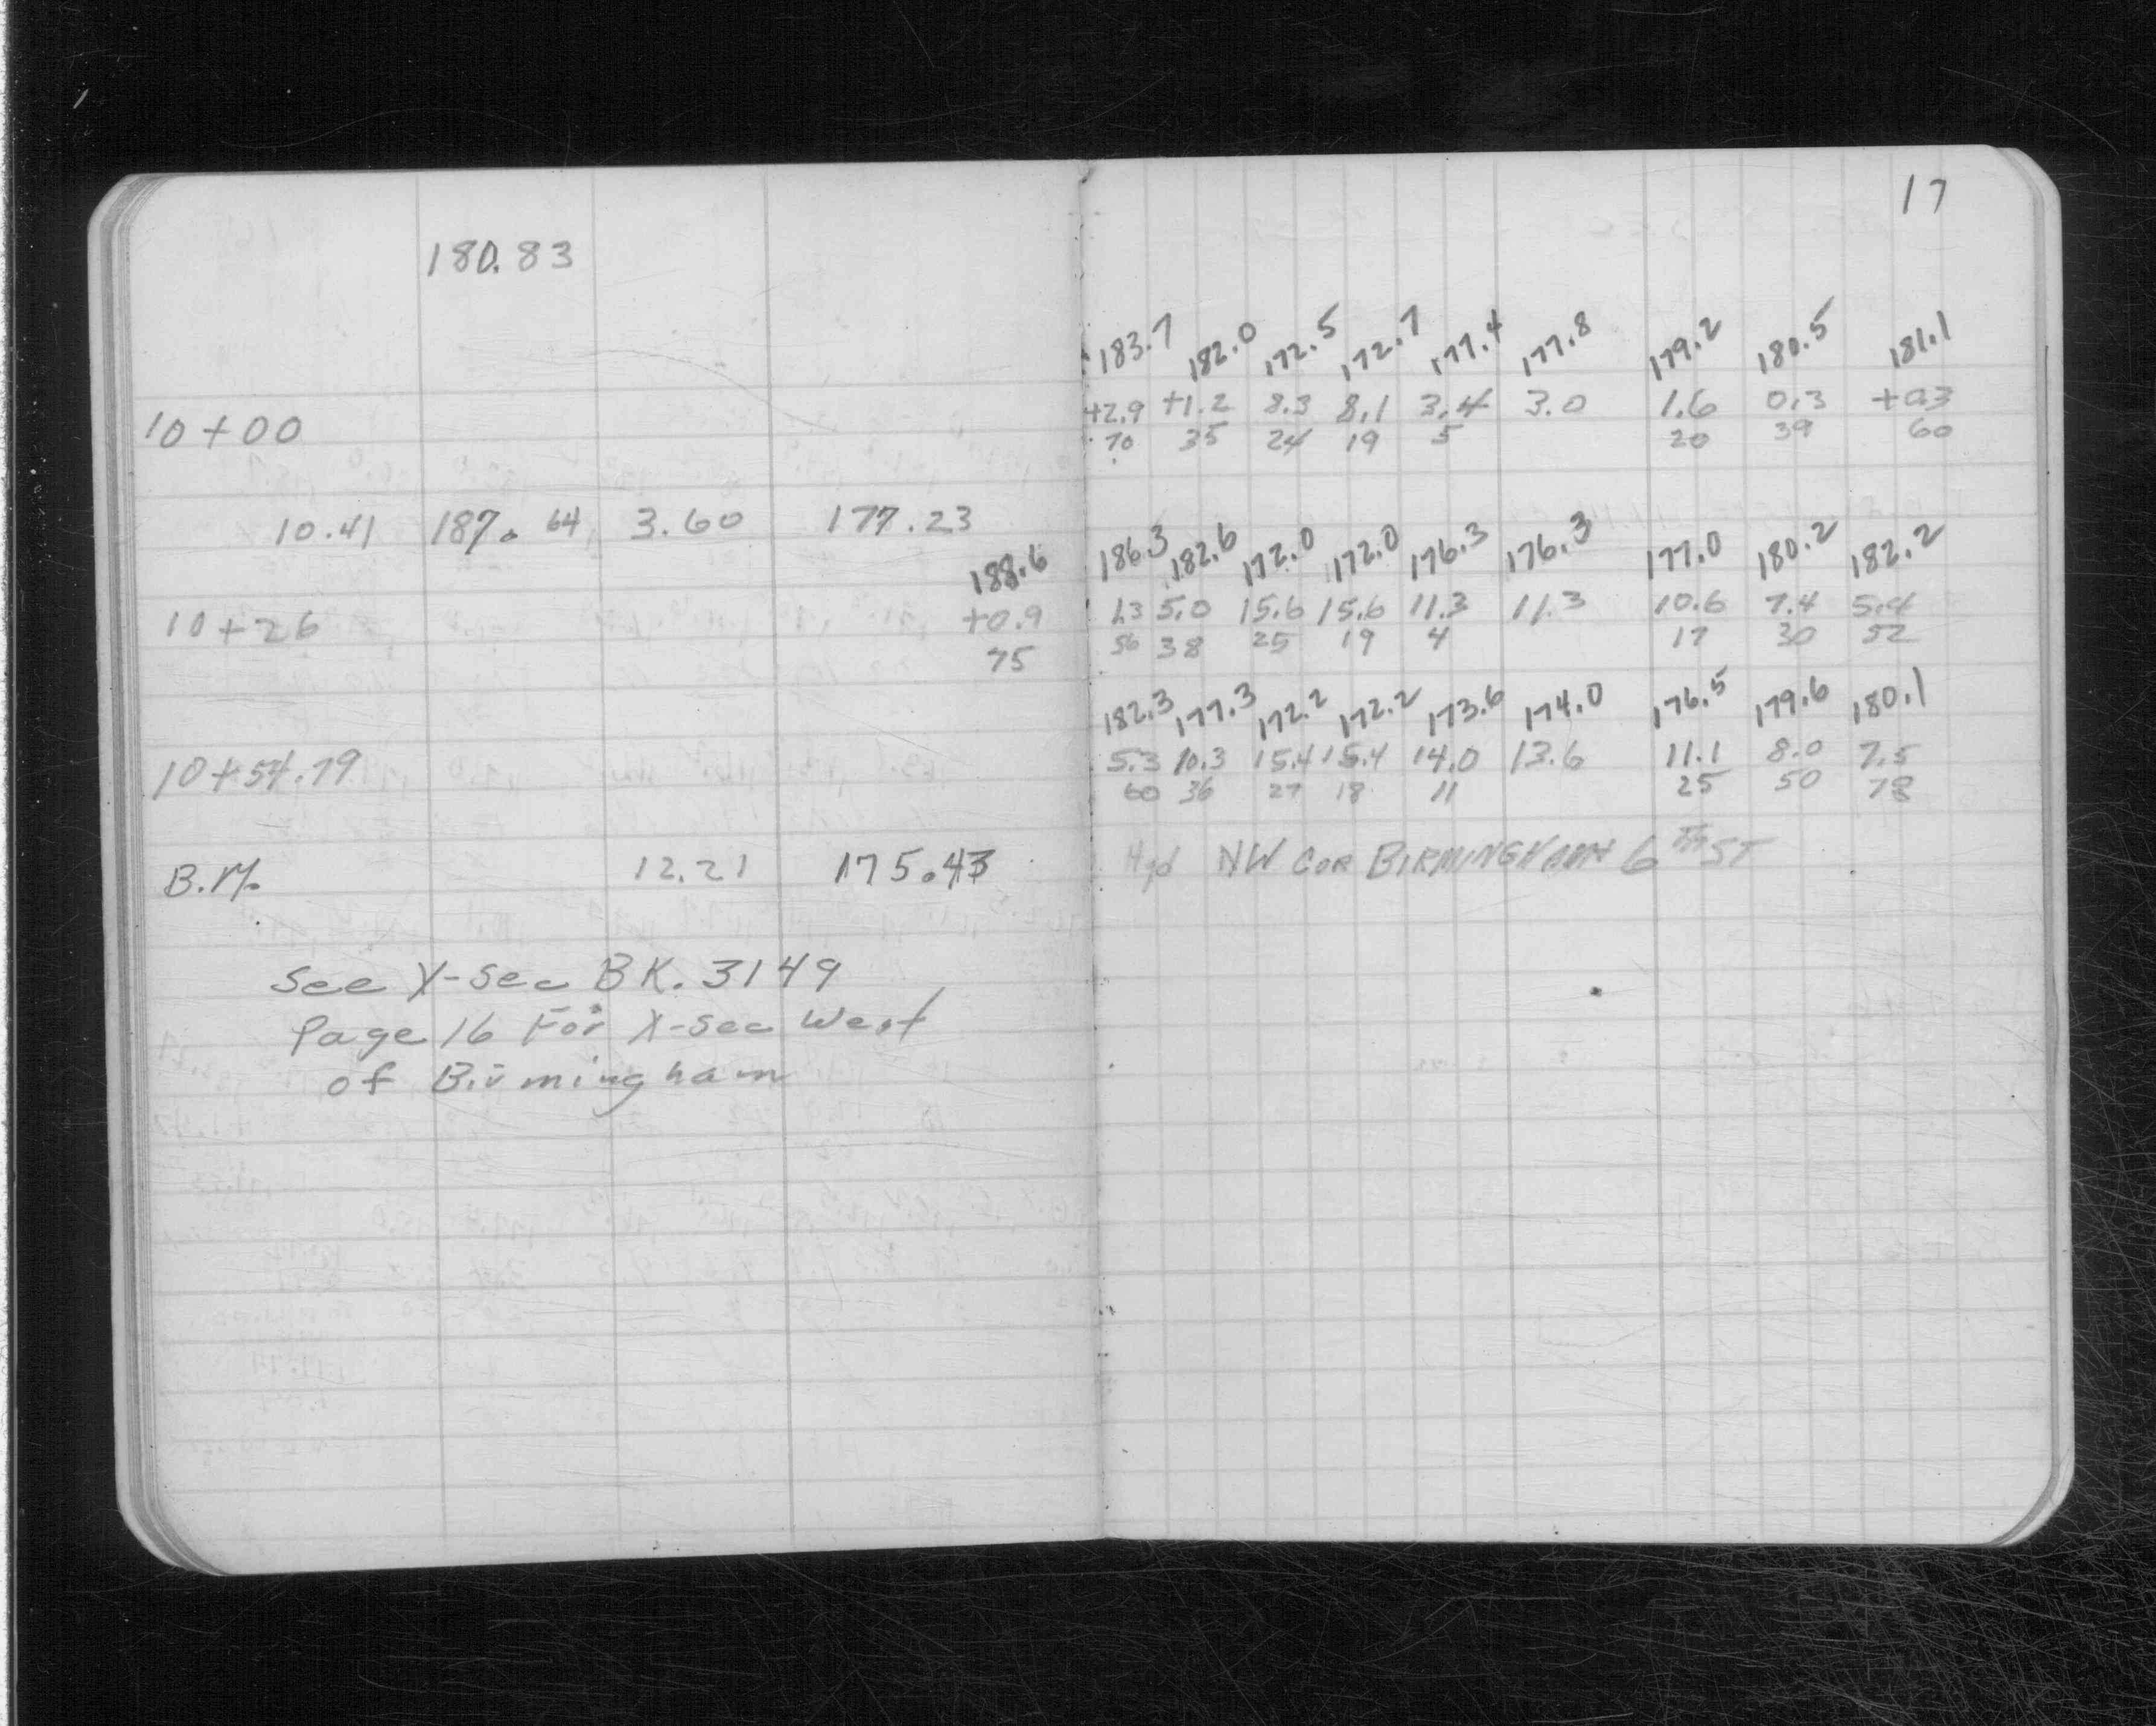 17
180.83
183.7 182.0 172.5 172.7 177.4 177.8 179.2 180.5 181.1
10+00 +2.9 +1.2 8.3 8.1 3.4 3.0 1.6 0.3 +0.3
70 35 24 19 5 20 39 60
10.41 187.64 3.60 177.23
188.6 186.3 182.6 172.0 172.0 176.3 176.3 177.0 180.2 182.2
10+26 +0.9 1.3 5.0 15.6 15.6 11.3 11.3 10.6 7.4 5.4
75 56 38 25 19 4 17 30 52
182.3 177.3 172.2 172.2 173.6 174.0 176.5 179.6 180.1
10+54.79 5.3 10.3 15.4 15.4 14.0 13.6 11.1 8.0 7.5
60 36 27 18 11 25 50 78
B.M. 12.21 175.43 Hyd NW COR BIRMINGHAM 6TH ST
See X-Sec BK. 3149
Page 16 For X-Sec West
of Birmingham